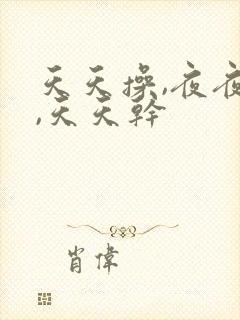 天天操,夜夜
,天天幹
肖偉